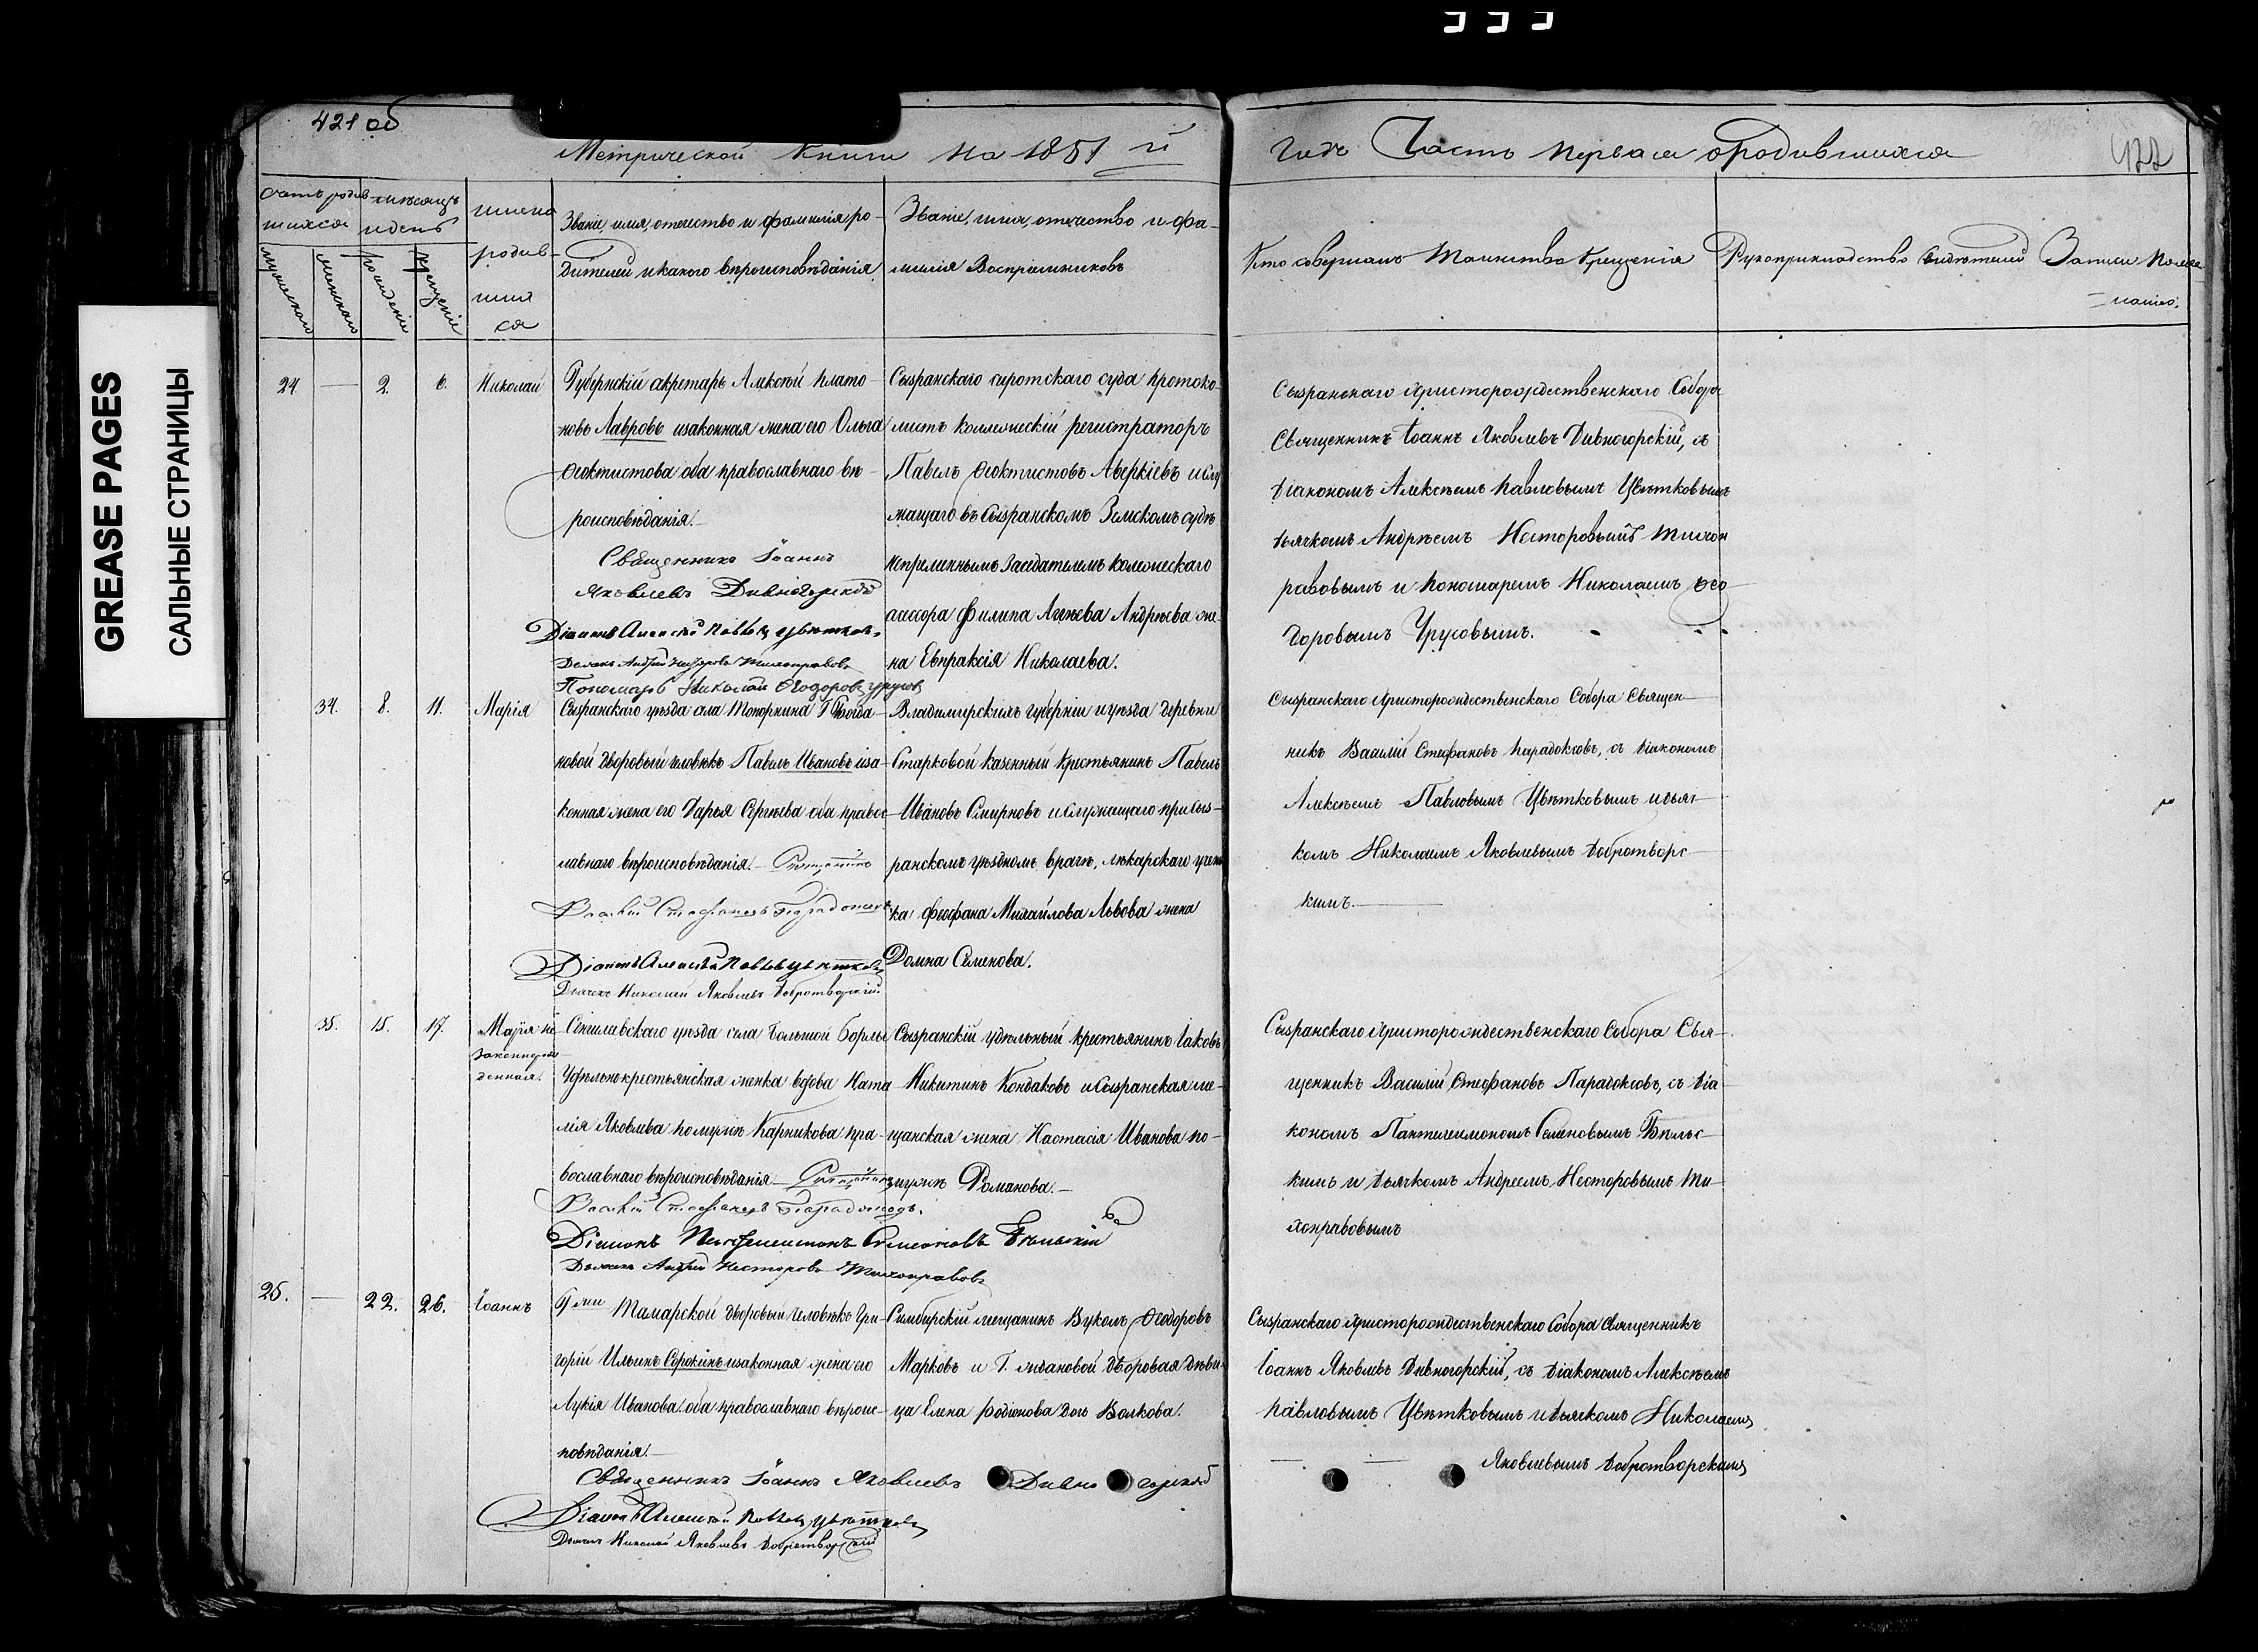 GREASE PAGES
САЛЬНЫЕ СТРАНИЦЫ
421 об
Метрической Книги на 1851 й
годъ Часть первая о родившихся
422
Счетъ родив-
шихся
мѣсяцъ
и день
мужескаго
женскаго
рожденія
крещенія
имена
родив-
ших
ся
Званіе, имя, отечество и фамилія ро-
дителей и какого вѣроисповѣданія
Званіе, имя, отечество и фа-
милія Воспріемниковъ
Кто совершалъ Таинство Крещенія
Рукоприкладство свидѣтелей Записи по жела-
нію.
24 — 2. 6. Николай
Губернскій секретарь Алексѣй Плато-
новъ Лавровъ и законная жена его Ольга
Ѳеоктистова оба православнаго вѣ-
роисповѣданія.
Священникъ Іоаннъ
Яковлевъ Дивногорскій
Діаконъ Алексѣй Павловъ Цвѣтковъ
Дьячекъ Андрей Несторовъ Тихонравовъ
Пономарь Николай Ѳеодоровъ Урусовъ
Сызранскаго сиротскаго суда протоко-
листъ коллежскій регистраторъ
Павелъ Ѳеоктистовъ Аверкіевъ и слу
жащаго въ Сызранскомъ Земскомъ судѣ
непремѣннымъ Засѣдателемъ колежскаго
ассесора Филипа Агѣева Андреева же-
на Евпраксія Николаева.
Сызранскаго Христорождественскаго Собора
Священникъ Іоаннъ Яковлевъ Дивногорскій, съ
діакономъ Алексѣемъ Павловымъ Цвѣтковымъ
дьячкомъ Андреемъ Несторовымъ Тихон
равовымъ и пономаремъ Николаемъ Ѳео
доровымъ Урусовымъ.
34. 8. 11. Марія
Сызранскаго уѣзда села Топорнина Г. Богда-
новой дворовый человѣкъ Павелъ Ивановъ и за-
конная жена его Дарья Сергѣева оба правос-
лавнаго вѣроисповѣданія. Священникъ
Василій Стефановъ Парадоксовъ
Діаконъ Алексѣй Павловъ Цвѣтковъ
Дьячекъ Николай Яковлевъ Добротворскій
Владимирскихъ губерніи и уѣзда деревни
Старковой казенный крестьянинъ Павелъ
Ивановъ Смирновъ и служащаго при Сыз-
ранскомъ уѣздномъ врачѣ, лѣкарскаго учени
ка Ѳеофана Михайлова Львова жена
Домна Семенова.
Сызранскаго Христорождественскаго Собора Священ-
никъ Василій Стефановъ Парадоксовъ, съ діакономъ
Алексѣемъ Павловымъ Цвѣтковымъ и дьяч-
комъ Николаемъ Яковлевымъ Добротворс-
кимъ.
35. 15. 17. Марія не
законнорож
денная.
Сенгилевскаго уѣзда села Большой Борлы
Удѣльнокрестьянская женка вдова Ната
лія Яковлева по мужѣ Карникова пра-
вославнаго вѣроисповѣданія Священникъ
Василій Стефановъ Парадоксовъ.
Діаконъ Пантелеимонъ Симеоновъ Бѣльскій
Дьячекъ Андрей Несторовъ Тихонравовъ
Сызранскій удѣльный крестьянинъ Іаковъ
Никитинъ Кондаковъ и Сызранская ме-
щанская жена Настасія Иванова по-
мужѣ Романова.
Сызранскаго Христорождественскаго Собора Свя-
щенникъ Василій Стефановъ Парадоксовъ, съ діа
кономъ Пантелеимономъ Семеновымъ Бѣльс-
кимъ и дьячкомъ Андреемъ Несторовымъ Ти-
хонравовымъ
25. — 22. 26. Іоаннъ
Г жи Татарской дворовый человѣкъ Гри-
горій Ильинъ Сорокинъ и законная жена его
Лукія Иванова оба православнаго вѣроис-
повѣданія.
Священникъ Іоаннъ Яковлевъ Дивногорскій
Діаконъ Алексѣй Павловъ Цвѣтковъ
Дьячекъ Николай Яковлевъ Добротворскій
Симбирскій мещанинъ Вуколъ Ѳеодоровъ
Марковъ и Г. Ждановой дворовая дѣви-
ца Елена Родіонова дочь Волкова.
Сызранскаго Христорождественскаго Собора священникъ
Іоаннъ Яковлевъ Дивногорскій, съ діакономъ Алексѣемъ
Павловымъ Цвѣтковымъ и дьячкомъ Николаемъ
Яковлевымъ Добротворскимъ